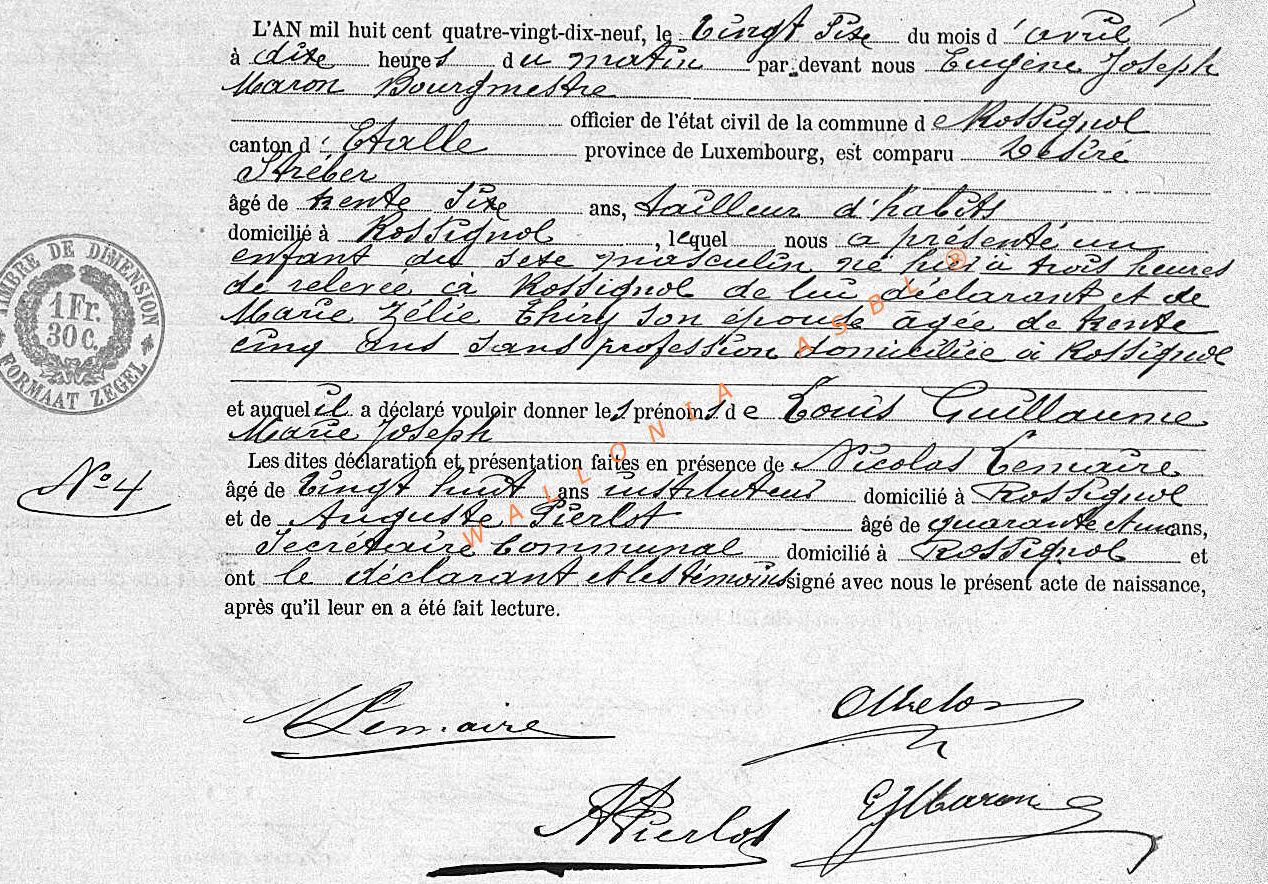 L'AN mil huit cent quatre-vingt-dix-neuf, le Vingt Six du mois d'avril
à dix heures du matin par devant nous Eugène Joseph
Maron Bourgmestre
officier de l'état civil de la commune de Rossignol
canton d'Etalle province de Luxembourg, est comparu Désiré
Stréber
âgé de trente Six ans, tailleur d'habits
domicilié à Rossignol, lequel nous a présenté un
enfant du sexe masculin né hier à trois heures
de relevée à Rossignol de lui déclarant et de
Marie Zélie Thiry son épouse âgée de trente
cinq ans sans profession domiciliée à Rossignol
et auquel il a déclaré vouloir donner les prénoms de Louis Guillaume
Marie Joseph
Les dites déclaration et présentation faites en présence de Nicolas Lemaire
N° 4
âgé de Vingt huit ans instituteur domicilié à Rossignol
et de Auguste Pierlot âgé de quarante et un ans,
Secrétaire Communal domicilié à Rossignol et
ont le déclarant et les témoins signé avec nous le présent acte de naissance,
après qu'il leur en a été fait lecture.
TIMBRE DE DIMENSION
1 Fr.
30 C.
FORMAAT ZEGEL
WALLONIA ASBL ®
NLemaire
APierlot
EJMaron